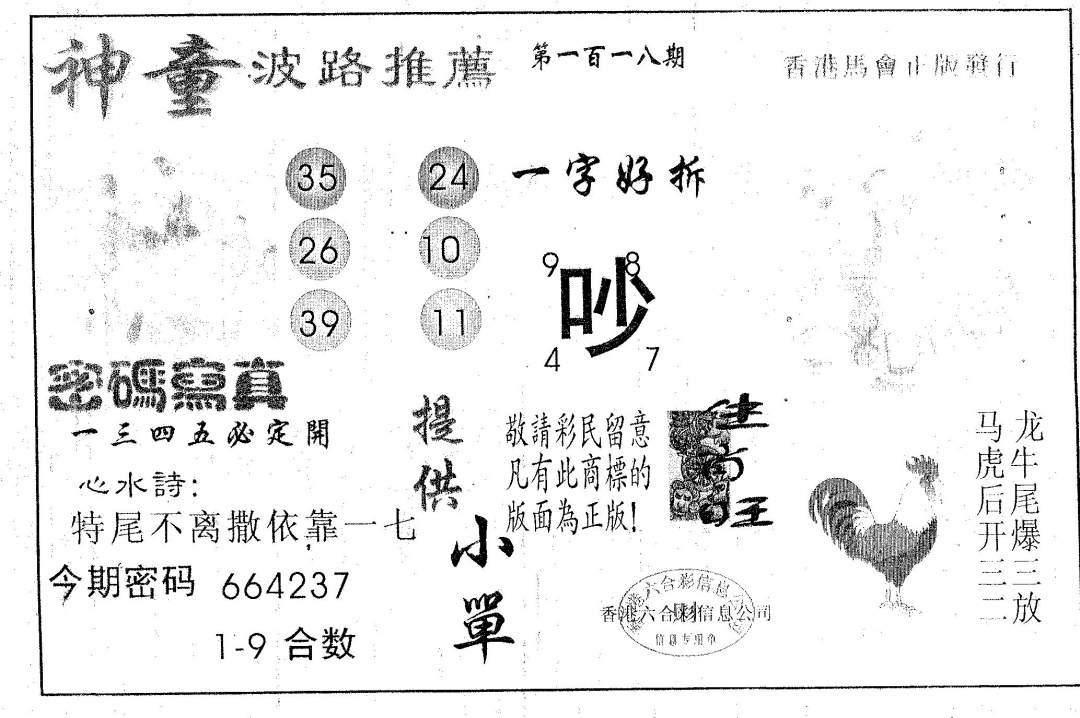 神童波路推薦
第一百一八期
香港馬會正版發行
35 24
26 10
39 11
一字好拆
9 8
吵
4 7
密碼寫真
一三四五必定開
心水詩：
特尾不离撒依靠一七
今期密码 664237
1-9 合数
提供
小單
敬請彩民留意
凡有此商標的
版面為正版！
龙牛尾爆三放
马虎后开三二
香港六合彩信息公司